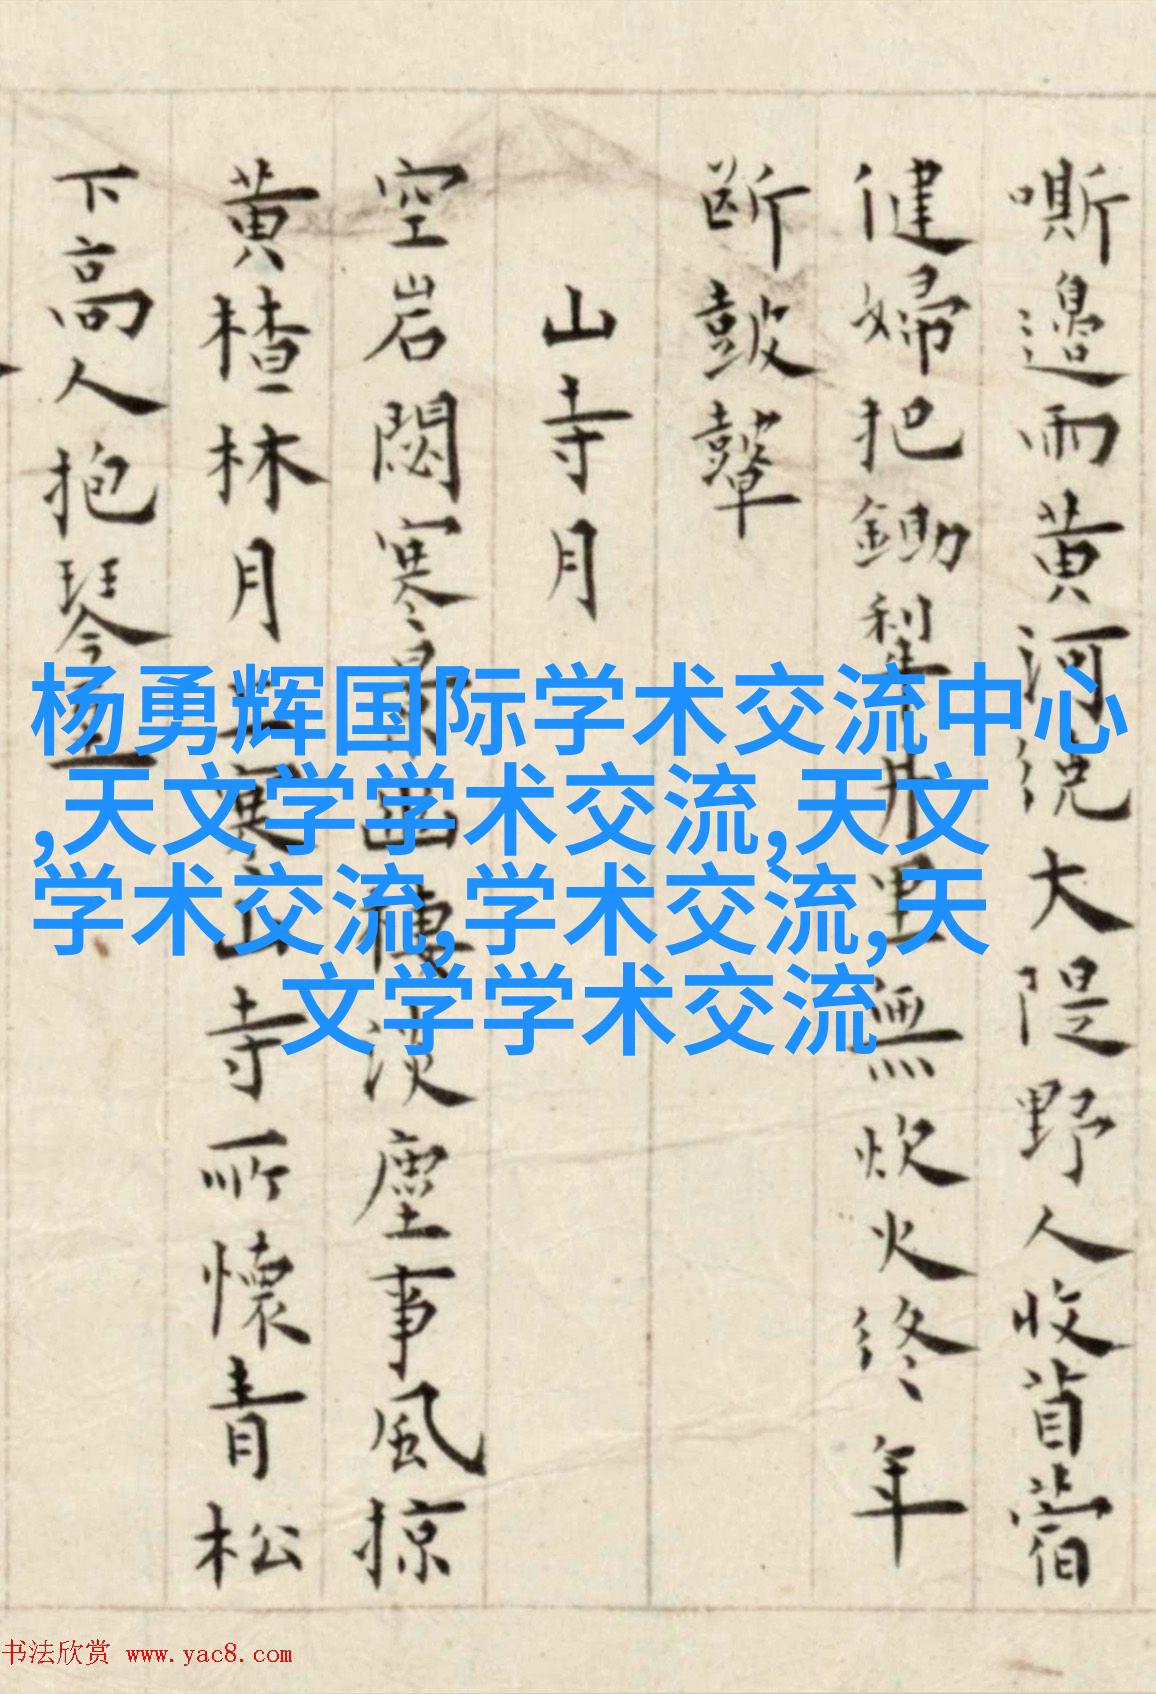 嘶邉雨黄河繞大隄野人收苜蓿
健婦把鋤犁井里無炊火終年
断鼓鼙
山寺月
空岩閟寒淡塵事風掠
黄楂林月寺所懷青松
下高人抱琴
杨勇辉国际学术交流中心
,天文学学术交流,天文
学术交流,学术交流,天
文学学术交流
书法欣赏 www.yac8.com